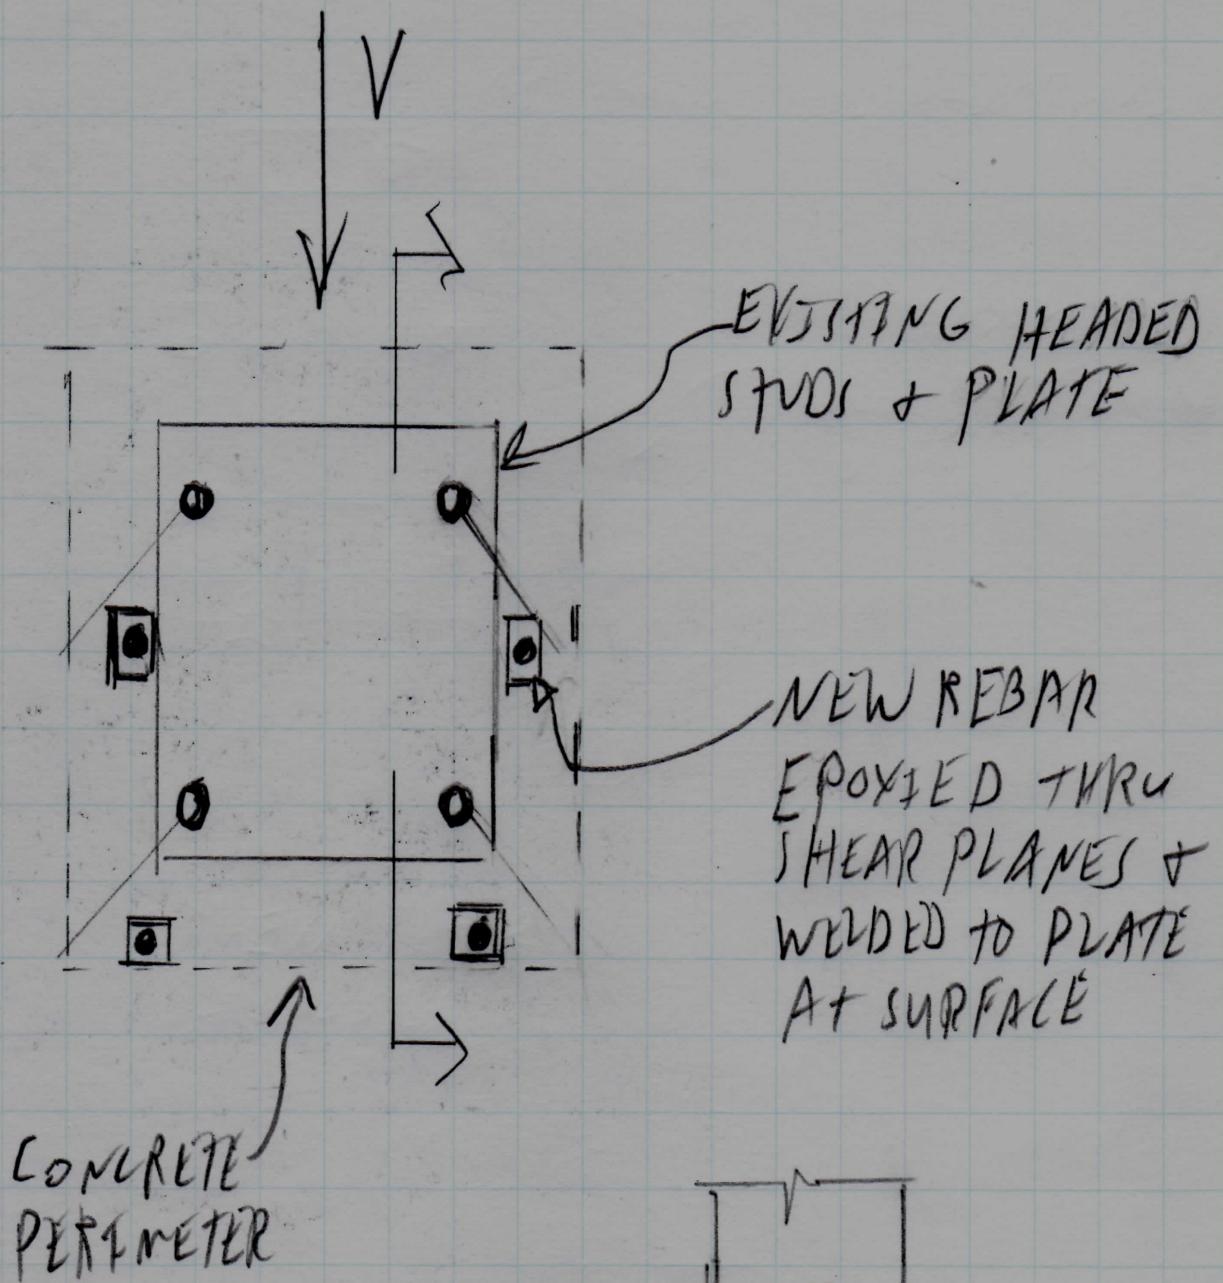 V
EXISTING HEADED
STUDS & PLATE
NEW REBAR
EPOXIED THRU
SHEAR PLANES &
WELDED TO PLATE
AT SURFACE
CONCRETE
PERIMETER